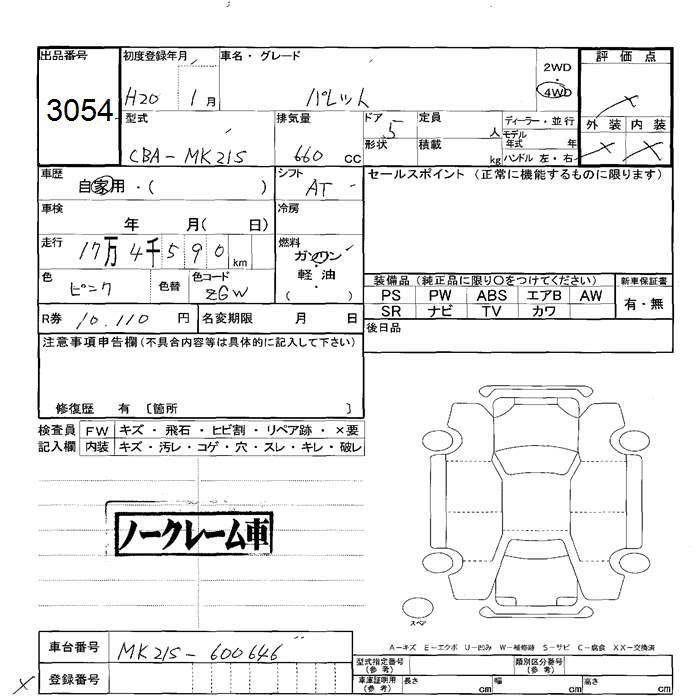 出品番号 初度登録年月 車名・グレード 2WD 評価点
3054 H20 1月 パレット ・ 4WD ×
型式 排気量 ドア 5 定員 人 ディーラー・並行 外装 内装
CBA-MK21S 660cc 形状 積載 kg モデル年式 年 × ×
ハンドル 左・右
車歴 自家用・( ) シフト AT セールスポイント (正常に機能するものに限ります)
車検 年 月( 日) 冷房
走行 17万4千590km 燃料 ガソリン・軽油
( )
色 ピンク 色替 色コード ZGW 装備品 (純正品に限り〇をつけてください) 新車保証書
PS PW ABS エアB AW 有・無
SR ナビ TV カワ
R券 10,110円 名変期限 月 日 後日品
注意事項申告欄 (不具合内容等は具体的に記入して下さい)
修復歴 有 〔箇所 〕
検査員 FW キズ・飛石・ヒビ割・リペア跡・×要
記入欄 内装 キズ・汚レ・コゲ・穴・スレ・キレ・破レ
ノークレーム車
スペア
A-キズ E-エクボ U-凹み W-補修跡 S-サビ C-腐食 XX-交換済
車台番号 MK21S-600646
型式指定番号(参考) 類別区分番号(参考)
× 登録番号 車庫証明用(参考) 長さ cm 幅 cm 高さ cm